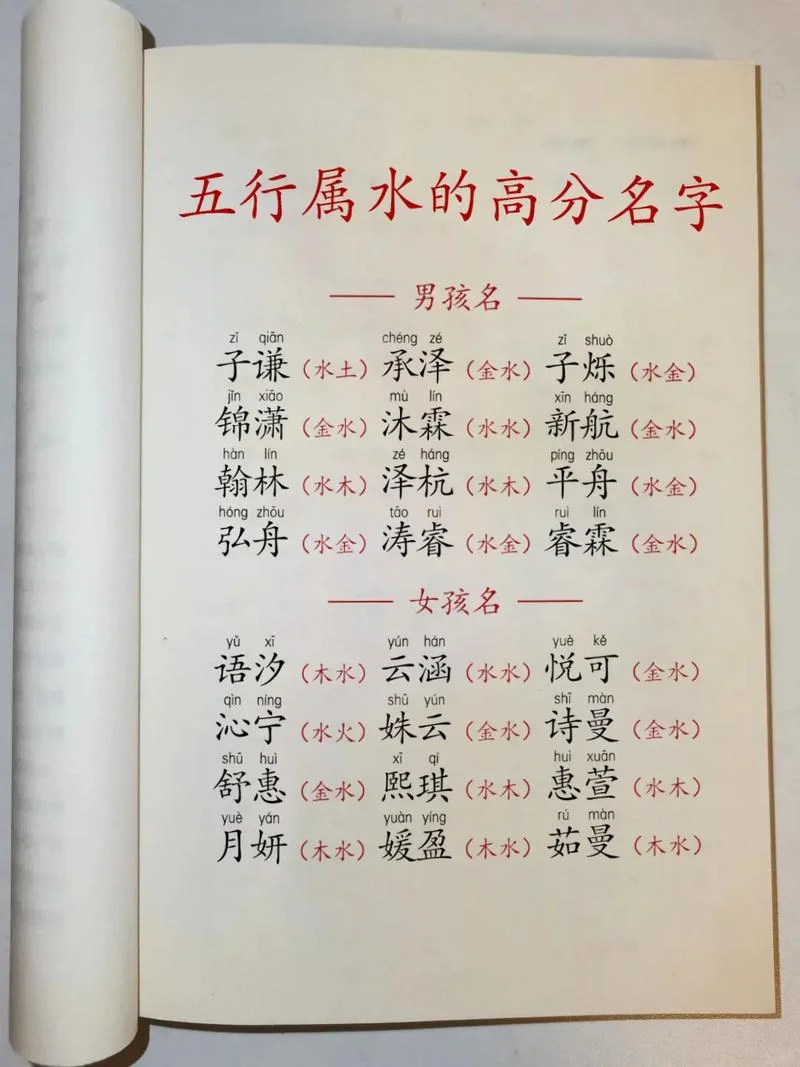 五行属水的高分名字
男孩名
zǐ qiān chéng zé zǐ shuò
子谦（水土） 承泽（金水） 子烁（水金）
jǐn xiāo mù lín xīn háng
锦潇（金水） 沐霖（水水） 新航（金水）
hàn lín zé háng píng zhōu
翰林（水木） 泽杭（水木） 平舟（水金）
hóng zhōu tāo ruì ruì lín
弘舟（水金） 涛睿（水金） 睿霖（金水）
女孩名
yǔ xī yún hán yuè kě
语汐（木水） 云涵（水水） 悦可（金水）
qìn níng shū yún shī màn
沁宁（水火） 姝云（金水） 诗曼（金水）
shū huì xī qí huì xuān
舒惠（金水） 熙琪（水木） 惠萱（水木）
yuè yán yuàn yíng rú màn
月妍（木水） 媛盈（木水） 茹曼（木水）